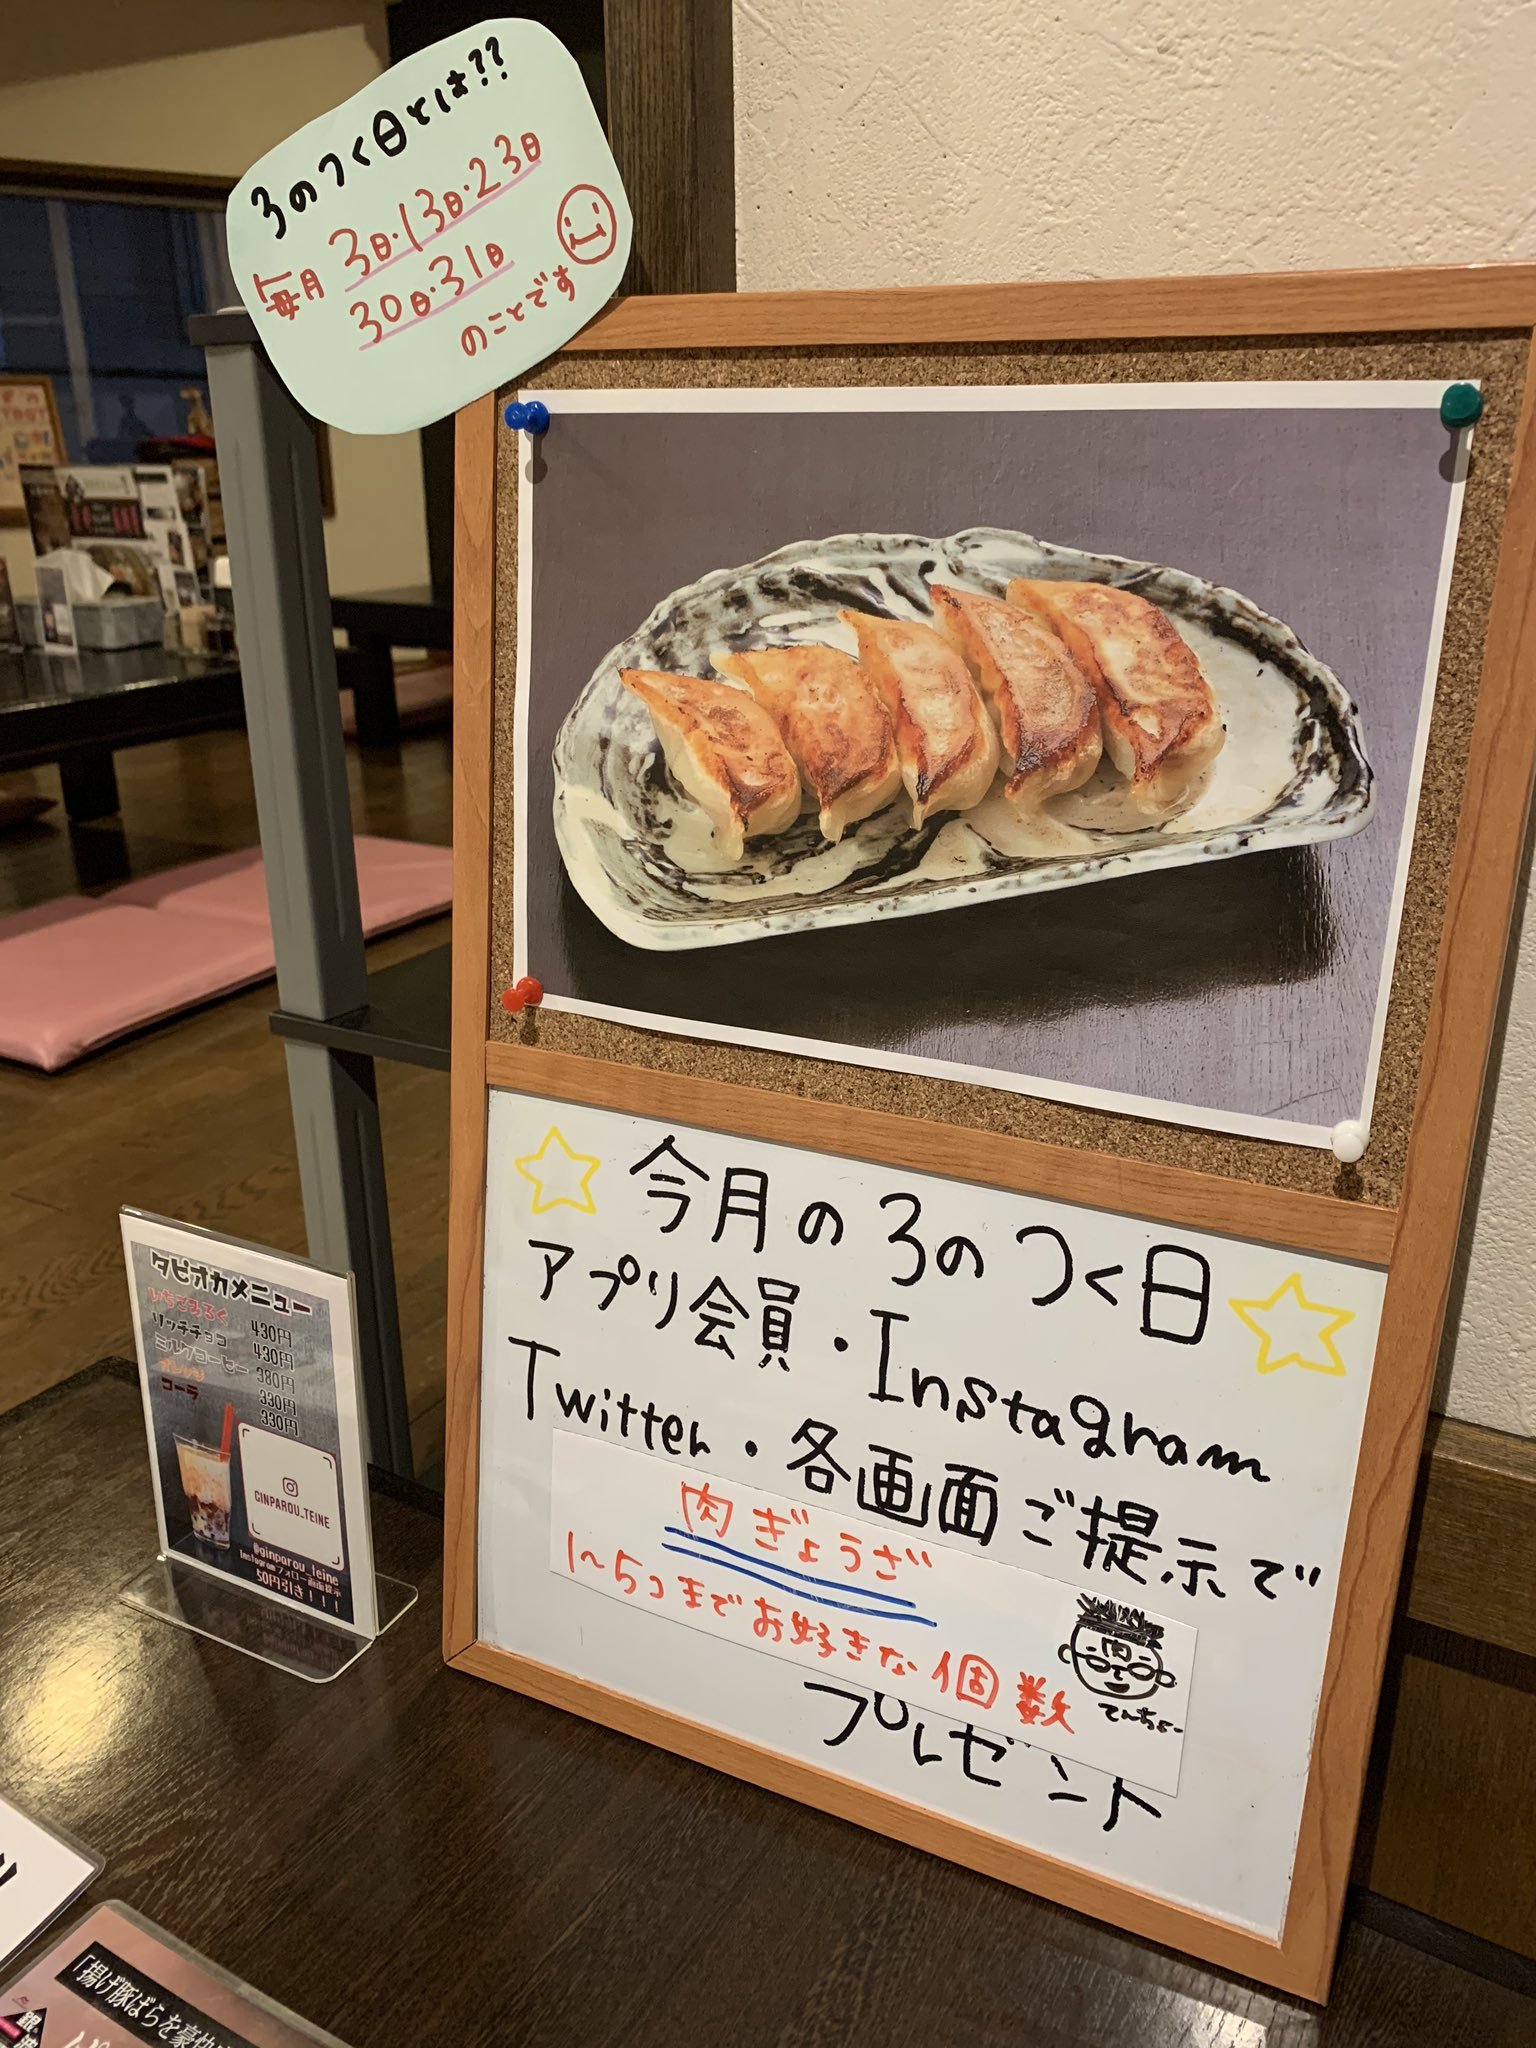 3のつく日とは??
毎月 3日・13日・23日
30日・31日
のことです
今月の3のつく日
アプリ会員・Instagram
Twitter・各画面ご提示で
肉ぎょうざ
1~5コまでお好きな個数
肉
てんちょー
プレゼント
タピオカメニュー
いちごみるく 430円
リッチチョコ 430円
ミルクコーヒー 380円
オレンジ 330円
コーラ 330円
GINPAROU_TEINE
@ginparou_teine
Instagramフォロー画面提示
50円引き!!!
「揚げ豚ばらを豪快